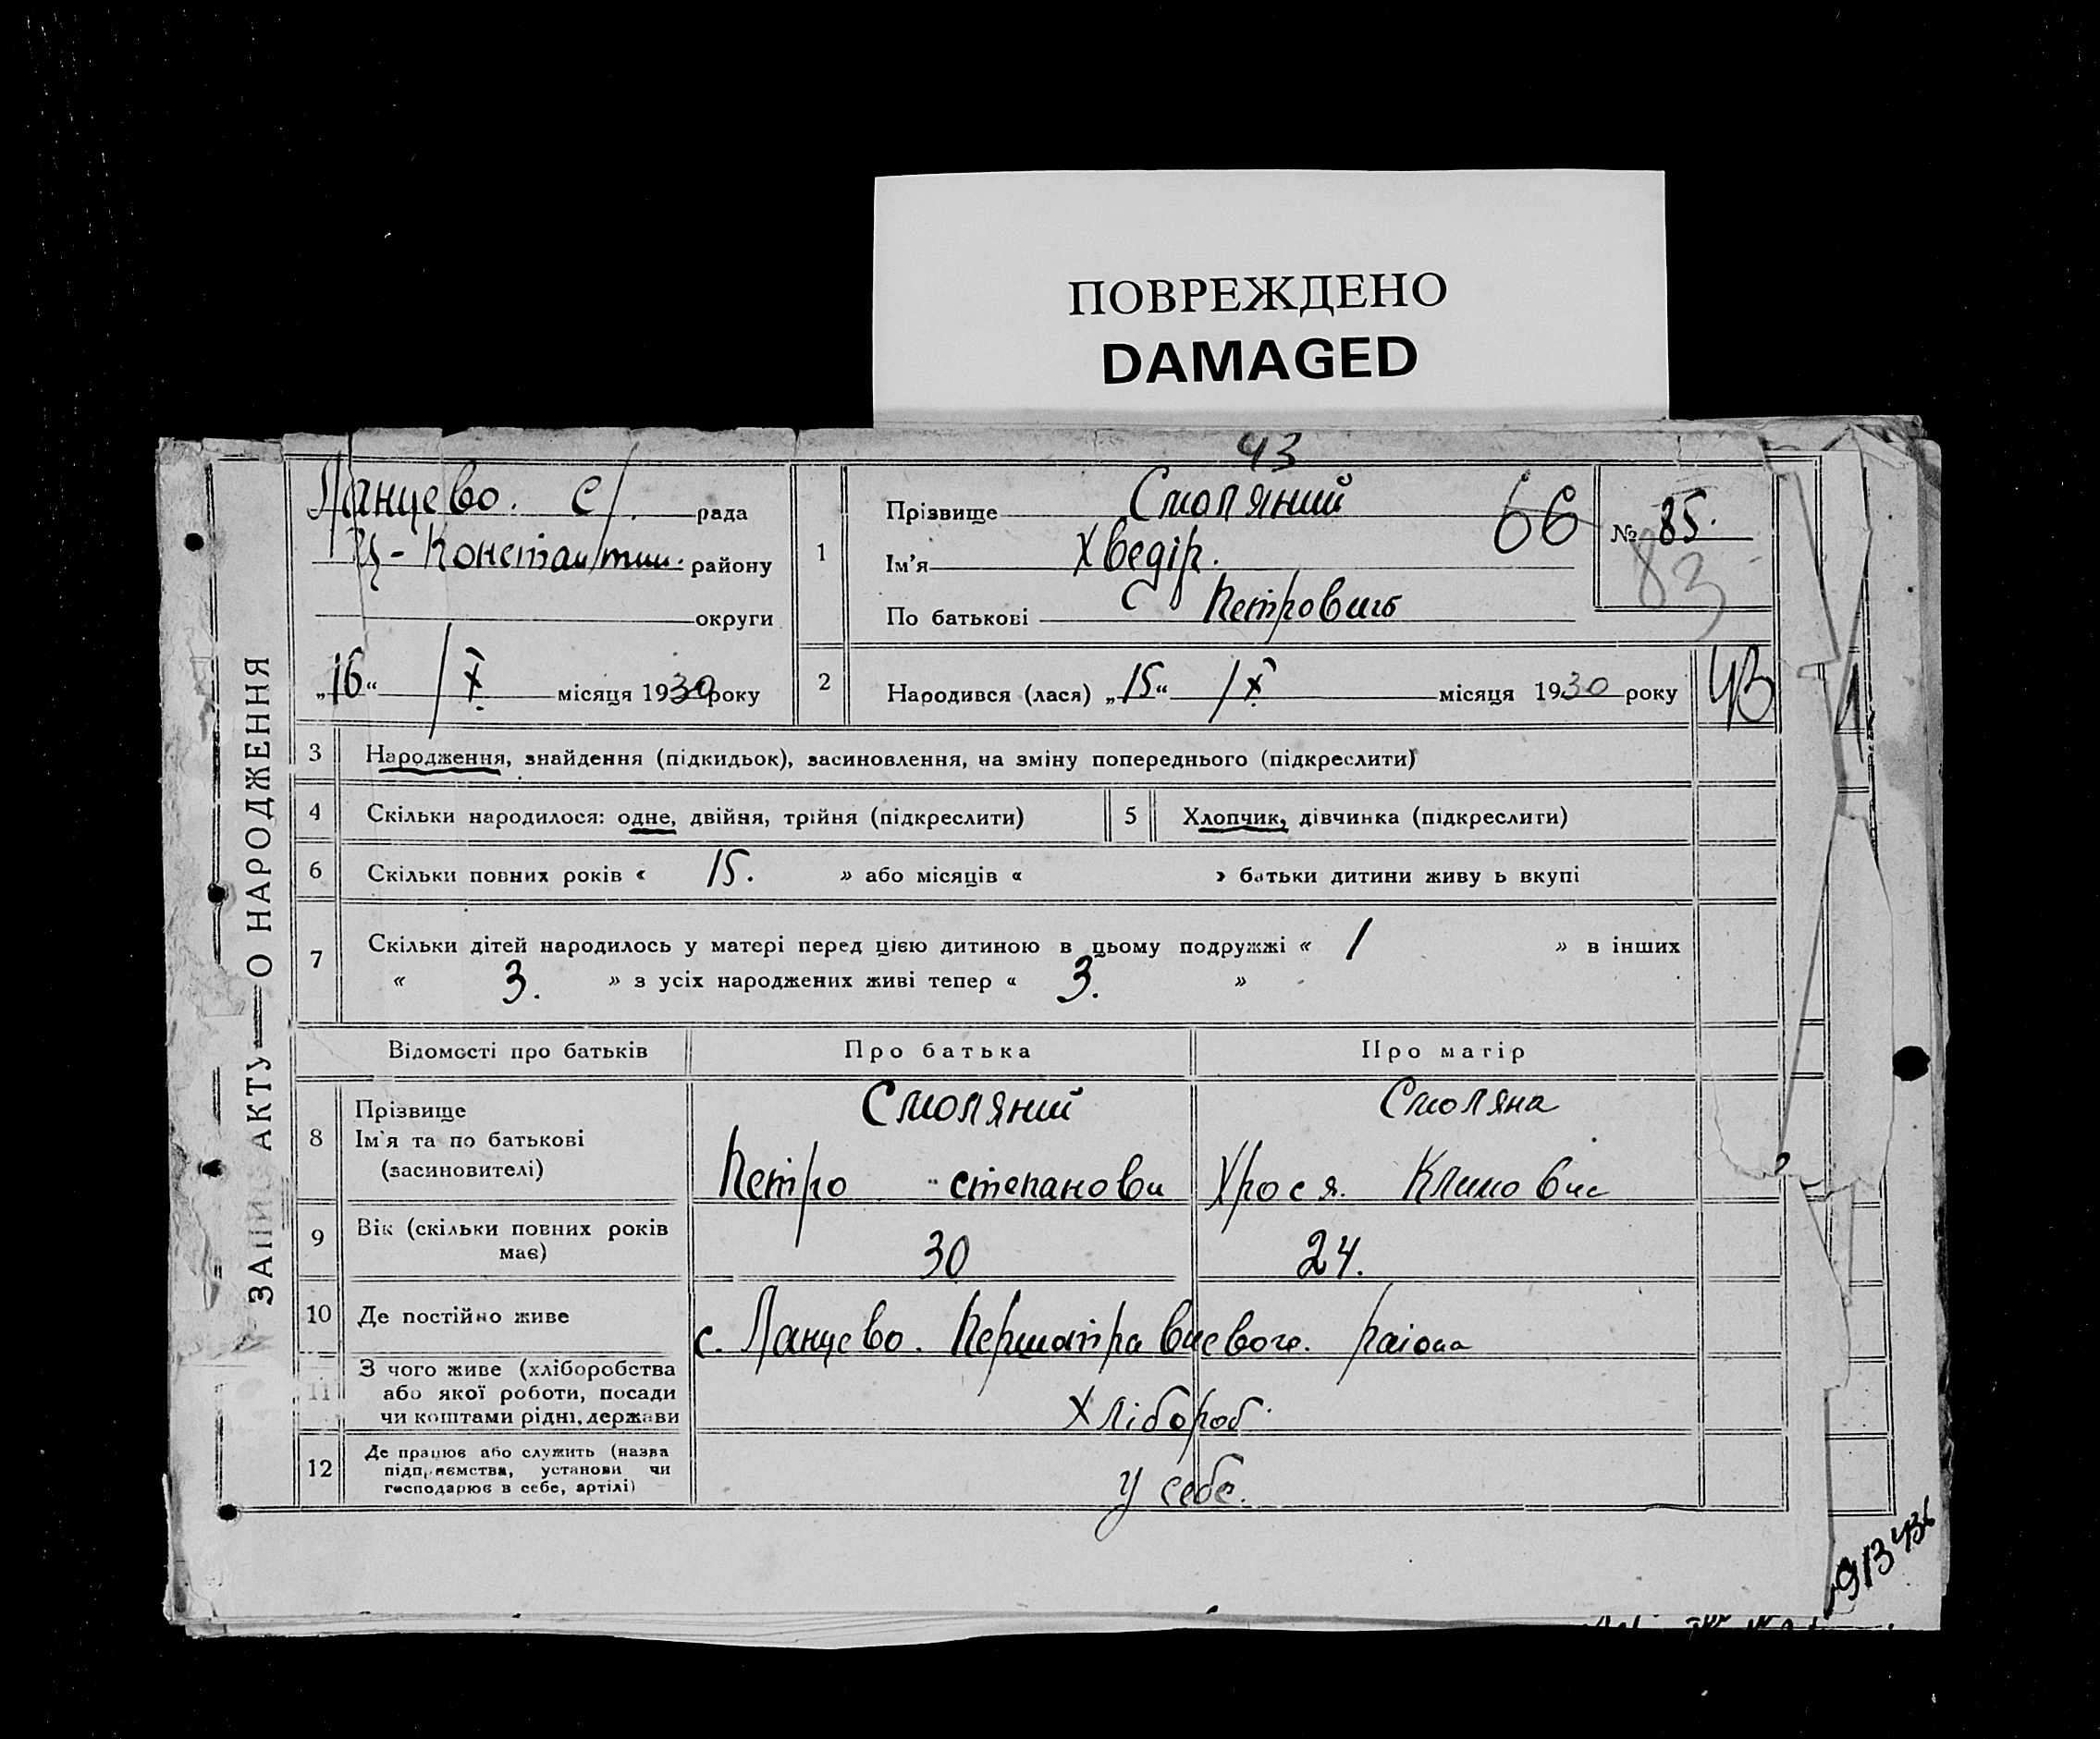 ПОВРЕЖДЕНО
DAMAGED
43
ЗАПИС АКТУ — О НАРОДЖЕННЯ
Ланцево. с/. рада
Ц-Констан/тин. району
округи
„16“ IX місяця 1930 року
1
Прізвище Смоляний
66
Ім'я Хведір.
По батькові Петровичь
№ 85.
83
2
Народився (лася) „15“ IX місяця 1930 року
43
3 Народження, знайдення (підкидьок), засиновлення, на зміну попереднього (підкреслити)
4 Скільки народилося: одне, двійня, трійня (підкреслити) 5 Хлопчик, дівчинка (підкреслити)
6 Скільки повних років « 15. » або місяців « » батьки дитини живу ь вкупі
7 Скільки дітей народилось у матері перед цією дитиною в цьому подружжі « 1 » в інших
« 3. » з усіх народжених живі тепер « 3. »
Відомості про батьків Про батька Про матір
8 Прізвище Смоляний Смоляна
Ім'я та по батькові
(засиновителі) Петро степанови Хрося. Климовис
9 Вік (скільки повних років
має) 30 24.
10 Де постійно живе с. Ланцево. района
11 З чого живе (хліборобства
або якої роботи, посади
чи коштами рідні, держави Хлібороб.
12 Де працює або служить (назва
підприємства, установи чи
господарює в себе, артілі) У себе.